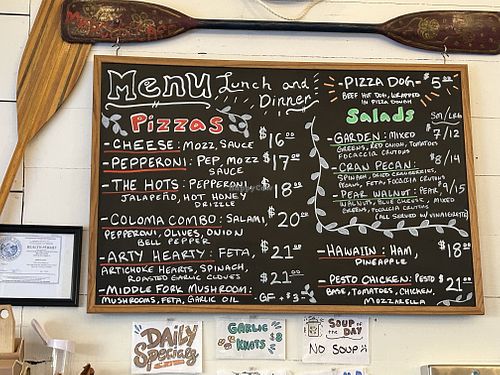 Menu Lunch and
Dinner
Pizzas
- CHEESE: MOZZ, SAUCE $16.00
- PEPPERONI: PEP, MOZZ $17.00
SAUCE
- THE HOTS: PEPPERONI, $18.00
JALAPEÑO, HOT HONEY
DRIZZLE
- COLOMA COMBO: SALAMI, $20.00
PEPPERONI, OLIVES, ONION
BELL PEPPER
- ARTY HEARTY: FETA, $21.00
ARTICHOKE HEARTS, SPINACH,
ROASTED GARLIC CLOVES
- MIDDLE FORK MUSHROOM: $21.00
MUSHROOMS, FETA, GARLIC OIL
GF + $3-
- PIZZA DOG- $5.00
BEEF HOT DOG, WRAPPED
IN PIZZA DOUGH
Salads
SM/LRG
- GARDEN: MIXED $7/12
GREENS, RED ONION, TOMATOES
FOCACCIA CRUTONS
- CRAN PECAN: $8/14
SPINACH, DRIED CRANBERRIES,
PECANS, FETA, FOCACCIA CRUTONS
- PEAR WALNUT: PEAR, $9/15
WALNUTS, BLUE CHEESE, MIXED
GREENS, FOCACCIA CRUTONS
(ALL SERVED W/ VINAIGRETTE)
- HAWAIIN: HAM, $18.00
PINEAPPLE
- PESTO CHICKEN: PESTO $21.00
BASE, TOMATOES, CHICKEN,
MOZZARELLA
DAILY
Specials
GARLIC $8
KNOTS
SOUP of the
DAY
NO SOUP